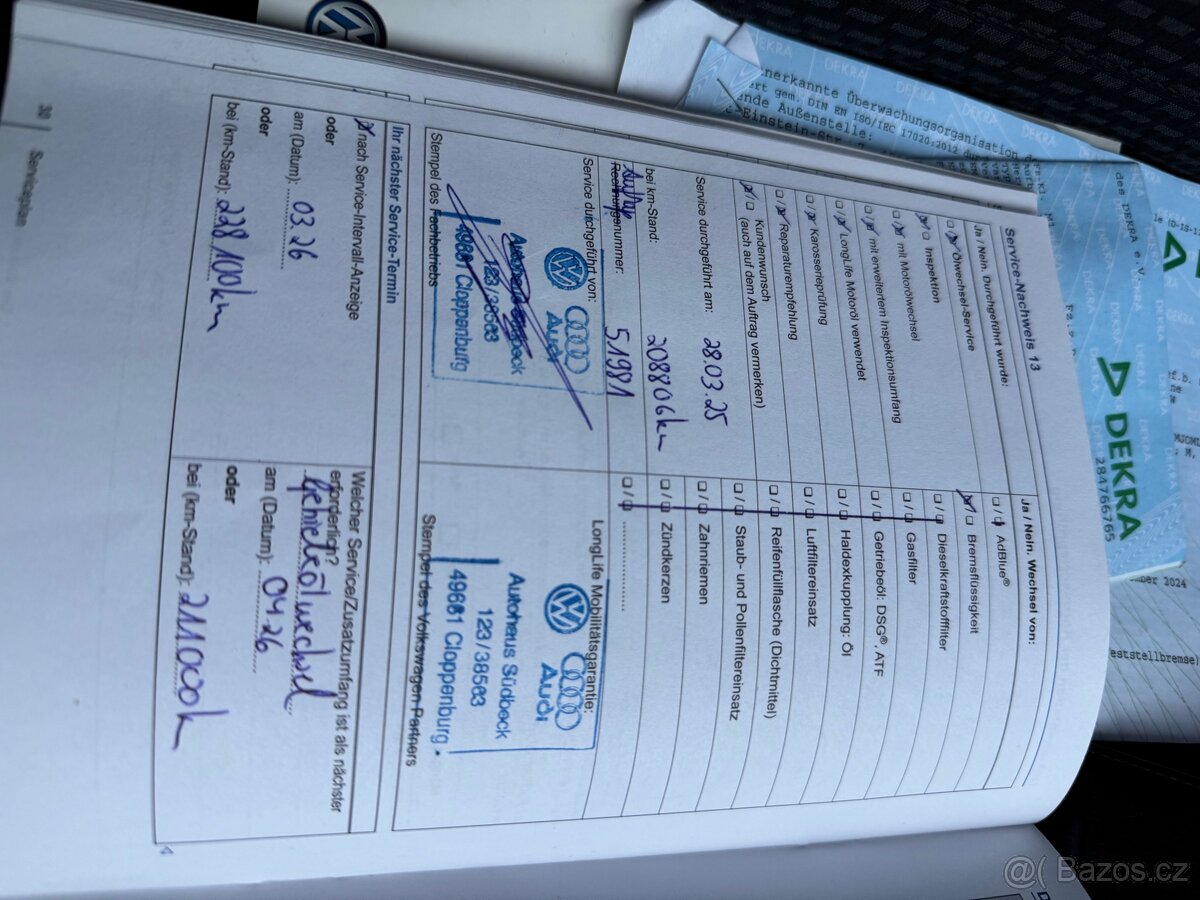 Service-Nachweis 13
Ja / Nein. Durchgeführt wurde:
Ölwechsel-Service
Inspektion
mit Motorölwechsel
mit erweitertem Inspektionsumfang
LongLife Motoröl verwendet
Karosserieprüfung
Reparaturempfehlung
Kundenwunsch
(auch auf dem Auftrag vermerken)
Service durchgeführt am: 28.03.25
bei km-Stand: 208806km
Rechnungsnummer: 51981
Service durchgeführt von:
Audi
Autohaus Südbeck
123/38503
49661 Cloppenburg
Stempel des Fachbetriebs
Ja / Nein. Wechsel von:
AdBlue®
Bremsflüssigkeit
Dieselkraftstofffilter
Gasfilter
Getriebeöl: DSG®, ATF
Haldexkupplung: Öl
Luftfiltereinsatz
Reifenfüllflasche (Dichtmittel)
Staub- und Pollenfiltereinsatz
Zahnriemen
Zündkerzen
LongLife Mobilitätsgarantie:
Audi
Autohaus Südbeck
123/38503
49661 Cloppenburg
Stempel des Volkswagen Partners
Ihr nächster Service-Termin
nach Service-Intervall-Anzeige
oder
am (Datum): 03.26
oder
bei (km-Stand): 228100km
Welcher Service/Zusatzumfang ist als nächster
erforderlich?
Getriebeölwechsel
am (Datum): 04.26
oder
bei (km-Stand): 211.000k
30
Serviceplan
4
DEKRA
nerkannte Überwachungsorganisation
ert gem. DIN EN ISO/IEC 17020:2012
ende Außenstelle:
-Einstein-Str.
des DEKRA e.V.
DEKRA
284766765
2024
eststellbremse)
@( Bazos.cz